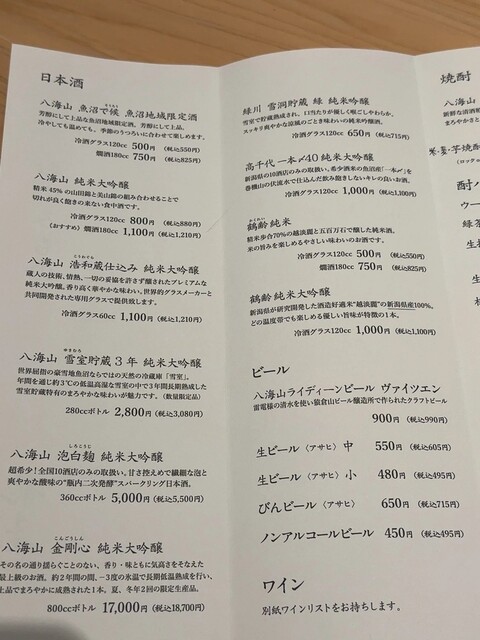 日本酒
八海山 魚沼で候 魚沼地域限定酒
芳醇にして上品な魚沼地域限定酒。芳醇にして上品。
冷やしても温めても、季節のうつろいに合わせて楽しめます。
冷酒グラス120cc 500円 (税込550円)
燗酒180cc 750円 (税込825円)
八海山 純米大吟醸
精米 45%の山田錦と美山錦の組み合わせることで
切れが良く飽きの来ない食中酒です。
冷酒グラス120cc 800円 (税込880円)
(おすすめ) 燗酒180cc 1,100円 (税込1,210円)
八海山 浩和蔵仕込み 純米大吟醸
蔵人の技術、情熱、一切の妥協を許さず醸されたプレミアムな
純米大吟醸。香り高く華やかな味わい。世界的グラスメーカーと
共同開発された専用グラスで提供致します。
冷酒グラス60cc 1,100円 (税込1,210円)
八海山 雪室貯蔵3年 純米大吟醸
世界屈指の豪雪地魚沼ならではの天然の冷蔵庫「雪室」。
年間を通じ約3℃の低温高湿な雪室の中で3年間長期熟成した
雪室貯蔵特有のまろやかな味わいが魅力です。(数量限定品)
280ccボトル 2,800円 (税込3,080円)
八海山 泡白麹 純米大吟醸
超希少!全国10酒店のみの取扱い。甘さ控えめで繊細な泡と
爽やかな酸味の“瓶内二次発酵”スパークリング日本酒。
360ccボトル 5,000円 (税込5,500円)
八海山 金剛心 純米大吟醸
その名の通り揺らぐことのない、香り・味ともに気高さをそなえた
最上級のお酒。約2年間の間、-3度の氷温で長期低温熟成を行い、
上品でまろやかに成熟された1本。夏、冬年2回の限定生産品。
800ccボトル 17,000円 (税込18,700円)
緑川 雪洞貯蔵 緑 純米吟醸
雪室で貯蔵熟成され、口当たりが優しく喉ごしやわらか。
スッキリ爽やかな涼風のごとき味わいの純米吟醸酒。
冷酒グラス120cc 650円 (税込715円)
高千代 一本〆40 純米大吟醸
新潟県の10酒店のみの取扱い。希少酒米の魚沼産「一本〆」を
巻機山の伏流水で仕込んだ飲み飽きしないキレの良いお酒。
冷酒グラス120cc 1,000円 (税込1,100円)
鶴齢 純米
精米歩合70%の越淡麗と五百万石で醸した純米酒。
米の旨みを楽しめるやさしい味わいのお酒です。
冷酒グラス120cc 500円 (税込550円)
燗酒180cc 750円 (税込825円)
鶴齢 純米大吟醸
新潟県が研究開発した酒造好適米“越淡麗”の新潟県産100%。
どの温度帯でも楽しめる優しい旨味が特徴の1本。
冷酒グラス120cc 1,000円 (税込1,100円)
ビール
八海山ライディーンビール ヴァイツエン
雷電様の清水を使い猿倉山ビール醸造所で作られたクラフトビール
900円 (税込990円)
生ビール 〈アサヒ〉 中 550円 (税込605円)
生ビール 〈アサヒ〉 小 480円 (税込495円)
びんビール 〈アサヒ〉 650円 (税込715円)
ノンアルコールビール 450円 (税込495円)
ワイン
別紙ワインリストをお持ちします。
焼酎
八海山
新鮮な清酒粕
まろやかさと
米・麦・芋焼酎
(ロック
酎ハ
ウー
緑茶